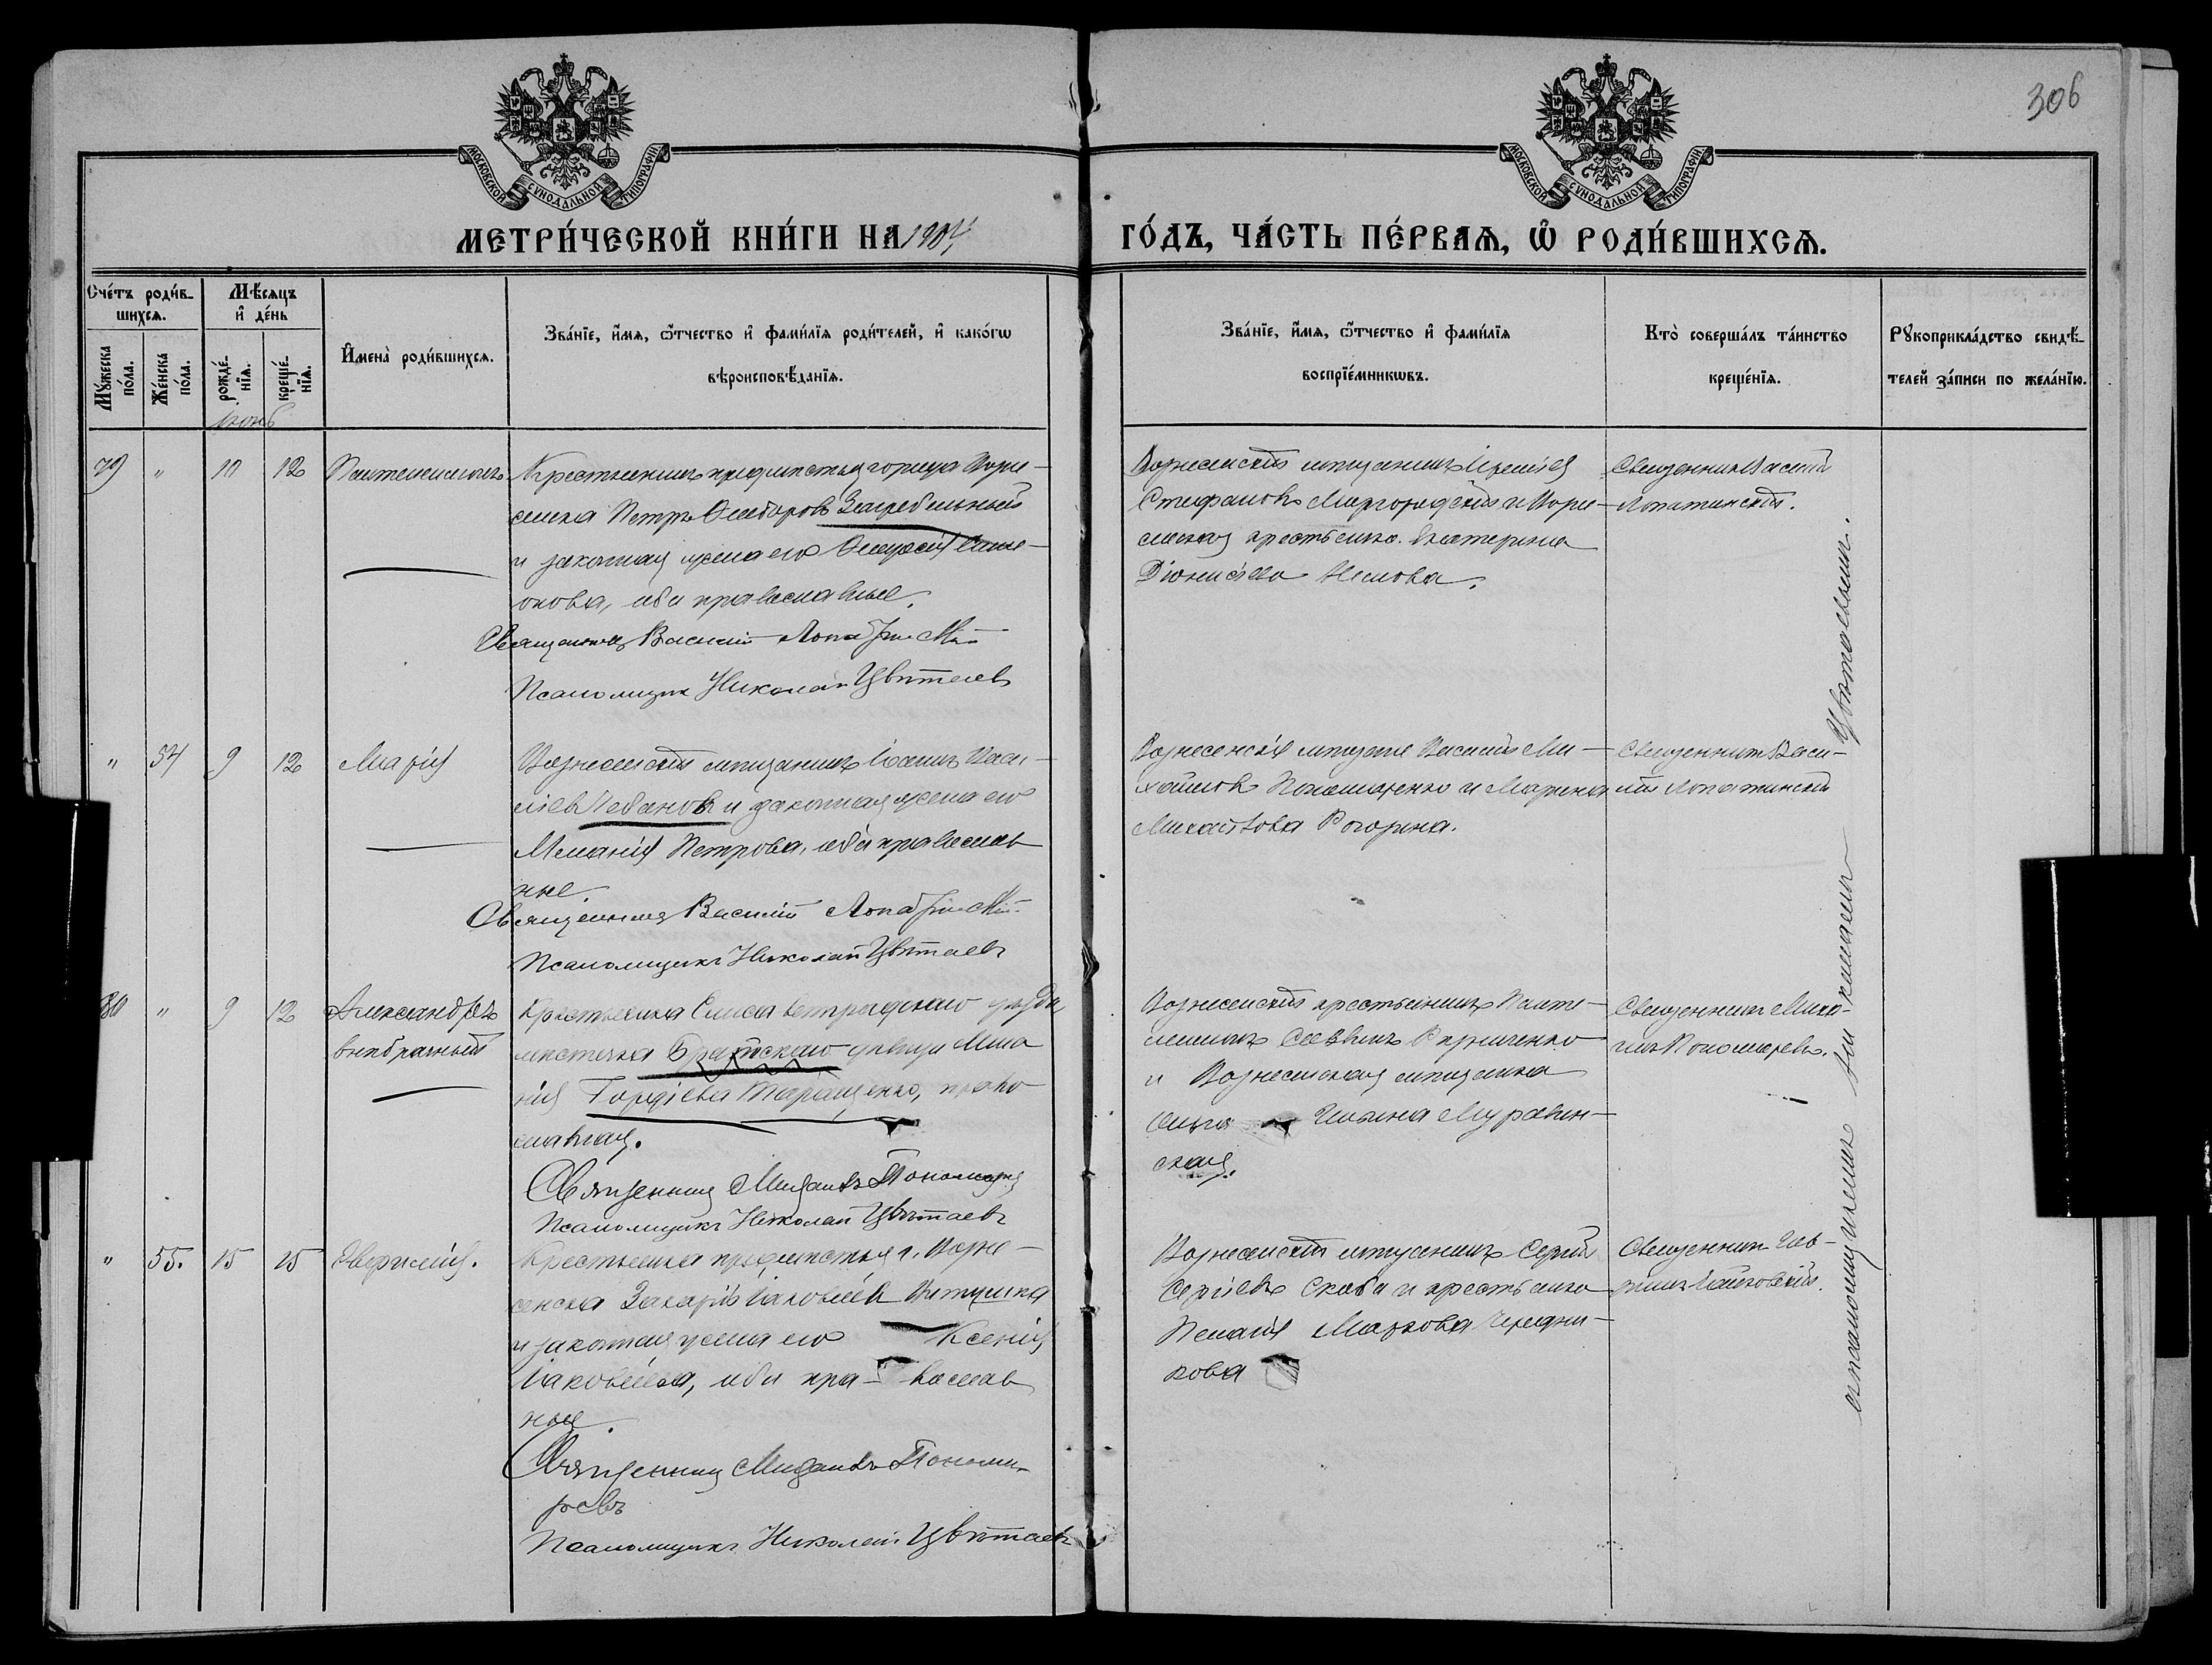 306
МОСКОВСКОЙ СУНОДАЛЬНОЙ ТИПОГРАФІИ
МОСКОВСКОЙ СУНОДАЛЬНОЙ ТИПОГРАФІИ
МЕТРИ́ЧЕСКОЙ КНИ́ГИ НА 1904
ГО́ДЪ, ЧА́СТЬ ПЕ́РВАѦ, Ѡ҆ РОДИ́ВШИХСѦ.
Сче́тъ роди́в-
шихсѧ.
Мꙋ́жеска
по́ла.
Же́нска
по́ла.
Мѣ́сѧцъ
и҆ де́нь
рожде́-
нїѧ.
креще́-
нїѧ.
Іюнь
И҆мена̀ роди́вшихсѧ.
Зва́нїе, и҆́мѧ, ѻ҆́тчество и҆ фами́лїѧ роди́телей, и҆ како́гѡ
вѣроисповѣ́данїѧ.
Зва́нїе, и҆́мѧ, ѻ҆́тчество и҆ фами́лїѧ
воспрїе́мникѡвъ.
Кто̀ соверша́лъ та́инство
креще́нїѧ.
Рꙋкоприкла́дство свидѣ́-
телей за́писи по жела́нїю.
79 " 10 12 Пантелеимонъ
Крестьянинъ предмѣстья города Возне-
сенска Петръ Ѳедоровъ Загребельный
и законная жена его
онова, оба православные.
Священникъ Василій Лопатинскій
Псаломщикъ Николай Цвѣтаевъ
Вознесенскій мѣщанинъ
Стефановъ Миргородскій и Возне-
сенская крестьянка Екатерина
Діонисіева
Священникъ Василій
Лопатинскій.
" 54 9 12 Марія
Вознесенскій мѣщанинъ Іоаннъ Васи-
ліевъ и законная жена его
Меланія Петрова, оба православ
ные.
Священникъ Василій Лопатинскій
Псаломщикъ Николай Цвѣтаевъ
Вознесенскіе мѣщане Василій Ми-
хайловъ Пономаренко и Марина
Михайлова
Священникъ Васи-
лій Лопатинскій
80 " 9 12 Александръ
внѣбрачный
Крестьянка Елисаветградскаго уѣзда,
мѣстечка Братскаго дѣвица Мела
нія Гордіева Таращенко, право
славная.
Священникъ Михаилъ Пономаревъ
Псаломщикъ Николай Цвѣтаевъ
Вознесенскій крестьянинъ Панте-
леимонъ Савинъ
и Вознесенская мѣщанка
Ольга Ильина Муравин-
ская.
Священникъ Миха-
илъ Пономаревъ.
" 55. 15 15 Евфимія.
Крестьянинъ предмѣстья г. Возне-
сенска Захарій Іаковлевъ
и законная жена его Ксенія
Іаковлева, оба пра- вослав
ные.
Священникъ Михаилъ Понома-
ревъ
Псаломщикъ Николай Цвѣтаевъ
Вознесенскій мѣщанинъ Сергій
Сергіевъ Скоба и крестьянка
Пелагія Маркова Чередни-
кова
Священникъ Гав-
риилъ
съ псаломщикомъ Николаемъ Цвѣтаевымъ.